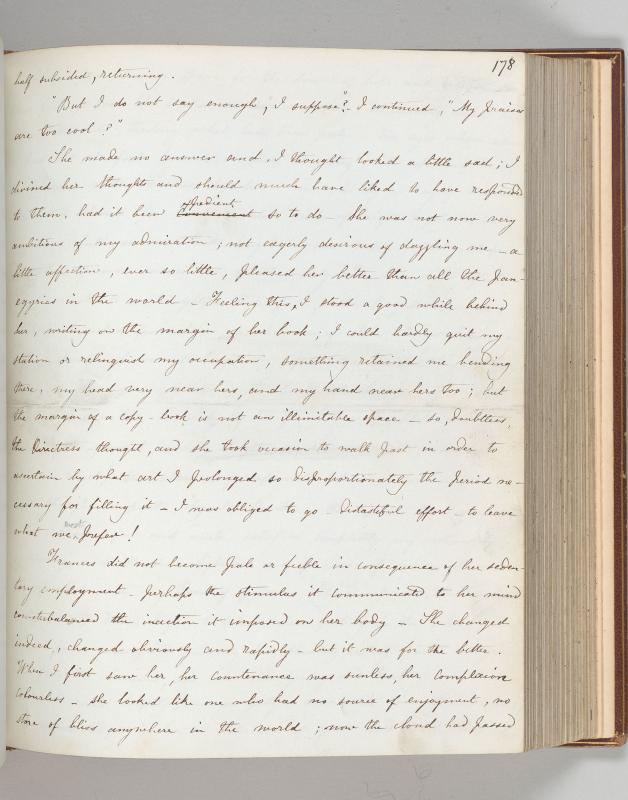 178
half subsided, returning.
"But I do not say enough, I suppose"? I continued, "My praises
are too cool?"
She made no answer and, I thought looked a little sad; I
divined her thoughts and should much have liked to have responded
to them, had it been expedient Convenient so to do - She was not now very
ambitious of my admiration; not eagerly desirous of dazzling me - a
little affection, ever so little, pleased her better than all the pan-
egyrics in the world - Feeling this, I stood a good while behind
her, writing on the margin of her book; I could hardly quit my
station or relinquish my occupation, something retained me bending
there, my head very near hers, and my hand near hers too; but
the margin of a copy-book is not an illimitable space - so, doubtless,
the Directress thought, and she took occasion to walk past in order to
ascertain by what art I prolonged so disproportionately the period ne-
cessary for filling it - I was obliged to go - Distasteful effort - to leave
what we most prefer!
Frances did not become pale or feeble in consequence of her seden-
tary employment - perhaps the stimulus it communicated to her mind
counterbalanced the inaction it imposed on her body - She changed
indeed, changed obviously and rapidly - but it was for the better.
When I first saw her, her countenance was sunless, her complexion
colourless - she looked like one who had no source of enjoyment, no
store of bliss anywhere in the world; now the cloud had passed